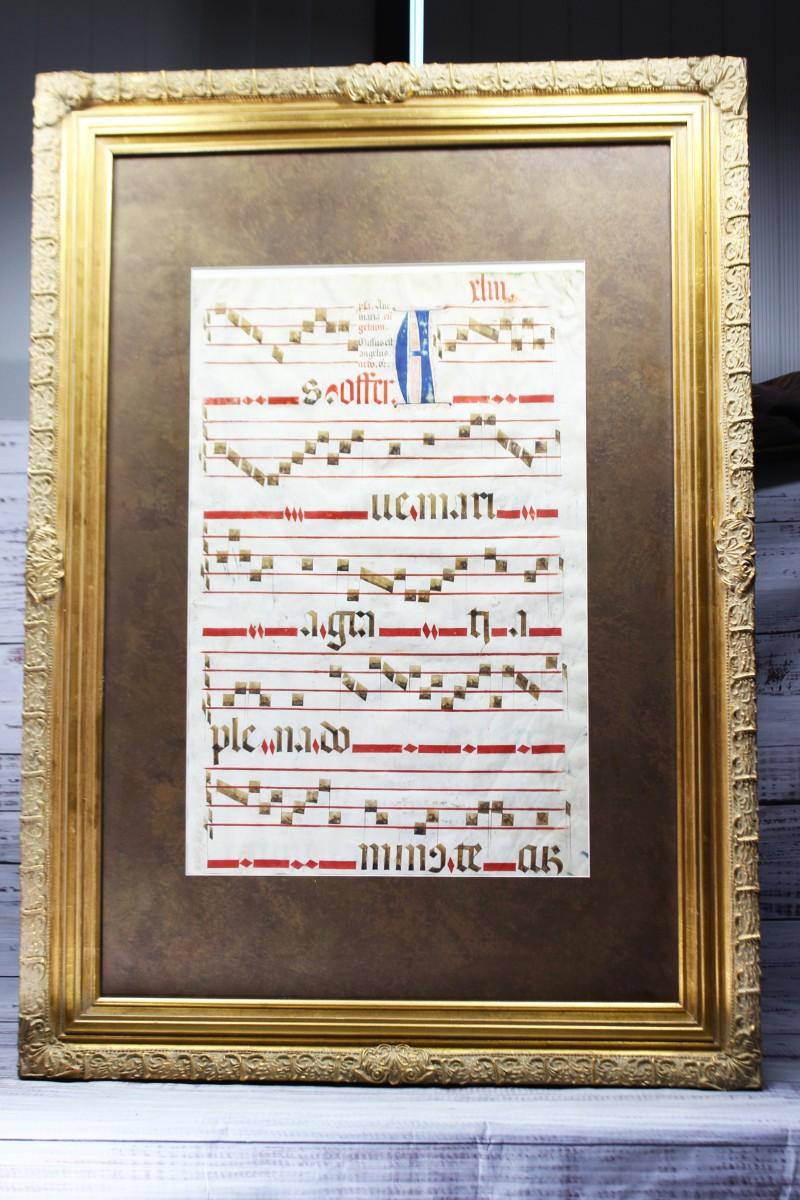 xliii.
ps̄. Aue
maria. eū
gelium.
Missus est
angelus.
s offer. A
ue mari
a gra ti a
ple na do
minꝰ te cū